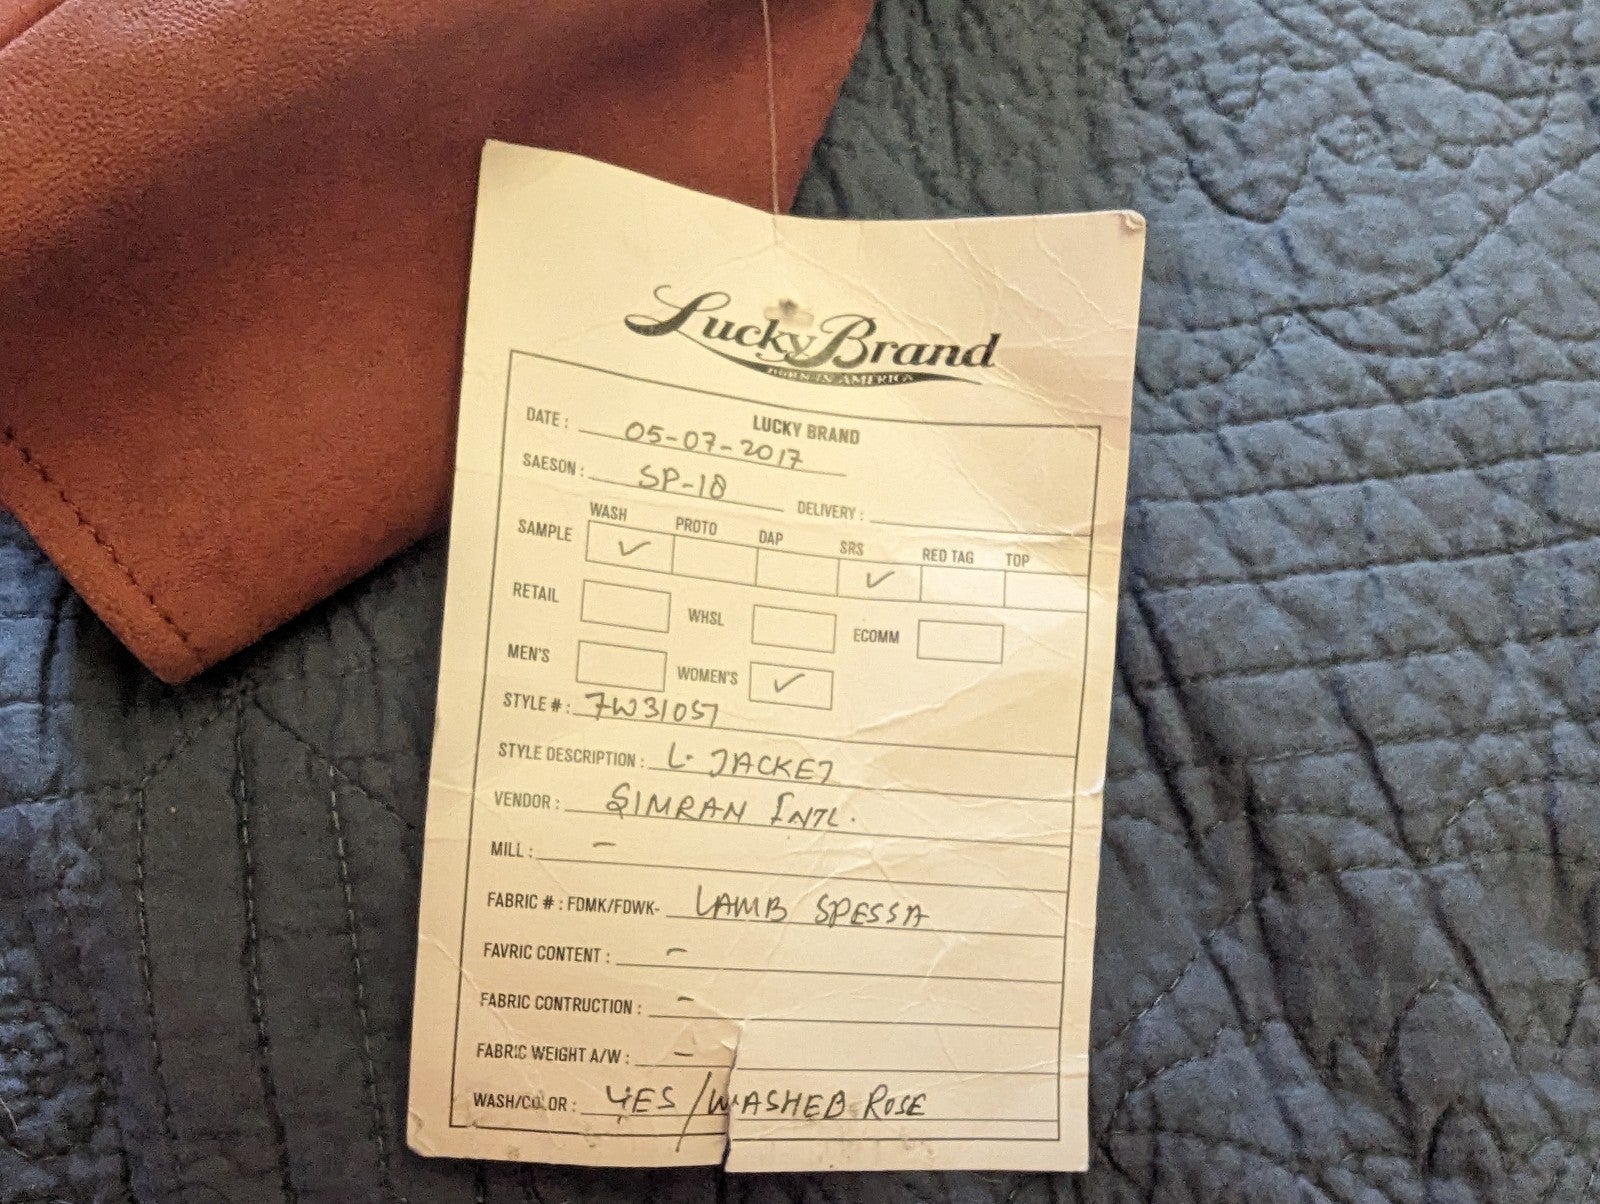 Lucky Brand
BORN IN AMERICA
LUCKY BRAND
DATE : 05-07-2017
SAESON : SP-18 DELIVERY :
SAMPLE WASH ✓ PROTO DAP SRS ✓ RED TAG TOP
RETAIL WHSL ECOMM
MEN'S WOMEN'S ✓
STYLE # : 7W31051
STYLE DESCRIPTION : L. JACKET
VENDOR : SIMRAN INTL.
MILL : -
FABRIC # : FDMK/FDWK- LAMB SPESSA
FAVRIC CONTENT : -
FABRIC CONTRUCTION : -
FABRIC WEIGHT A/W : -
WASH/COLOR : YES/WASHED ROSE